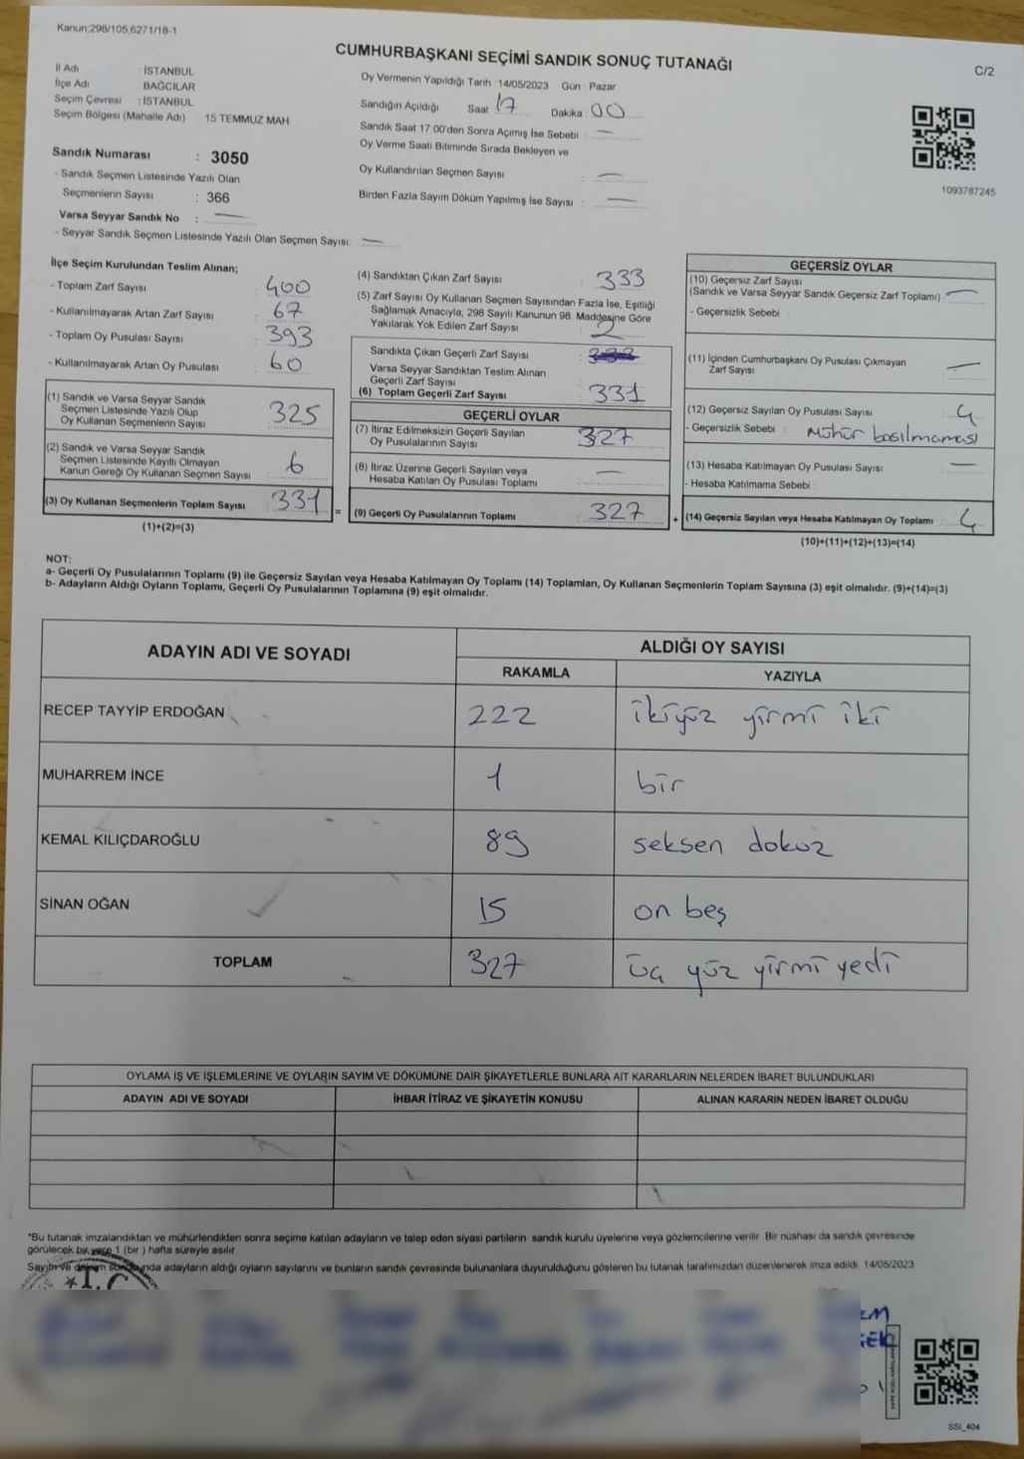 Kanun:298/105,6271/18-1
CUMHURBAŞKANI SEÇİMİ SANDIK SONUÇ TUTANAĞI
C/2
İl Adı : İSTANBUL
İlçe Adı : BAĞCILAR
Seçim Çevresi : İSTANBUL
Seçim Bölgesi (Mahalle Adı) 15 TEMMUZ MAH
Sandık Numarası : 3050
- Sandık Seçmen Listesinde Yazılı Olan
Seçmenlerin Sayısı : 366
Varsa Seyyar Sandık No : —
- Seyyar Sandık Seçmen Listesinde Yazılı Olan Seçmen Sayısı —
Oy Vermenin Yapıldığı Tarih 14/05/2023 Gün Pazar
Sandığın Açıldığı Saat 17 Dakika 00
Sandık Saat 17:00'den Sonra Açımış İse Sebebi —
Oy Verme Saati Bitiminde Sırada Bekleyen ve
Oy Kullandırılan Seçmen Sayısı : —
Birden Fazla Sayım Döküm Yapılmış İse Sayısı : —
1093787245
İlçe Seçim Kurulundan Teslim Alınan;
- Toplam Zarf Sayısı : 400
- Kullanılmayarak Artan Zarf Sayısı : 67
- Toplam Oy Pusulası Sayısı : 393
- Kullanılmayarak Artan Oy Pusulası : 60
(1) Sandık ve Varsa Seyyar Sandık
Seçmen Listesinde Yazılı Olup
Oy Kullanan Seçmenlerin Sayısı 325
(2) Sandık ve Varsa Seyyar Sandık
Seçmen Listesinde Kayıtlı Olmayan
Kanun Gereği Oy Kullanan Seçmen Sayısı 6
(3) Oy Kullanan Seçmenlerin Toplam Sayısı 331
(1)+(2)=(3)
(4) Sandıktan Çıkan Zarf Sayısı 333
(5) Zarf Sayısı Oy Kullanan Seçmen Sayısından Fazla İse, Eşitliği
Sağlamak Amacıyla, 298 Sayılı Kanunun 98. Maddesine Göre
Yakılarak Yok Edilen Zarf Sayısı 2
Sandıkta Çıkan Geçerli Zarf Sayısı
Varsa Seyyar Sandıktan Teslim Alınan
Geçerli Zarf Sayısı
(6) Toplam Geçerli Zarf Sayısı 331
GEÇERLİ OYLAR
(7) İtiraz Edilmeksizin Geçerli Sayılan
Oy Pusulalarının Sayısı 327
(8) İtiraz Üzerine Geçerli Sayılan veya
Hesaba Katılan Oy Pusulası Toplamı —
= (9) Geçerli Oy Pusulalarının Toplamı 327
GEÇERSİZ OYLAR
(10) Geçersiz Zarf Sayısı
(Sandık ve Varsa Seyyar Sandık Geçersiz Zarf Toplamı) —
- Geçersizlik Sebebi
(11) İçinden Cumhurbaşkanı Oy Pusulası Çıkmayan
Zarf Sayısı —
(12) Geçersiz Sayılan Oy Pusulası Sayısı 4
- Geçersizlik Sebebi : Mühür basılmaması
(13) Hesaba Katılmayan Oy Pusulası Sayısı —
- Hesaba Katılmama Sebebi :
+ (14) Geçersiz Sayılan veya Hesaba Katılmayan Oy Toplamı 4
(10)+(11)+(12)+(13)=(14)
NOT:
a- Geçerli Oy Pusulalarının Toplamı (9) ile Geçersiz Sayılan veya Hesaba Katılmayan Oy Toplamı (14) Toplamları, Oy Kullanan Seçmenlerin Toplam Sayısına (3) eşit olmalıdır. (9)+(14)=(3)
b- Adayların Aldığı Oyların Toplamı, Geçerli Oy Pusulalarının Toplamına (9) eşit olmalıdır.
ADAYIN ADI VE SOYADI
ALDIĞI OY SAYISI
RAKAMLA YAZIYLA
RECEP TAYYİP ERDOĞAN 222 ikiyüz yirmi iki
MUHARREM İNCE 1 bir
KEMAL KILIÇDAROĞLU 89 seksen dokuz
SİNAN OĞAN 15 on beş
TOPLAM 327 üç yüz yirmi yedi
OYLAMA İŞ VE İŞLEMLERİNE VE OYLARIN SAYIM VE DÖKÜMÜNE DAİR ŞİKAYETLERLE BUNLARA AİT KARARLARIN NELERDEN İBARET BULUNDUKLARI
ADAYIN ADI VE SOYADI İHBAR İTİRAZ VE ŞİKAYETİN KONUSU ALINAN KARARIN NEDEN İBARET OLDUĞU
*Bu tutanak imzalandıktan ve mühürlendikten sonra seçime katılan adayların ve talep eden siyasi partilerin sandık kurulu üyelerine veya gözlemcilerine verilir. Bir nüshası da sandık çevresinde
görülecek bir yere 1 (bir ) hafta süreyle asılır.
Sayım ve döküm sonunda adayların aldığı oyların sayılarını ve bunların sandık çevresinde bulunanlara duyurulduğunu gösteren bu tutanak tarafımızdan düzenlenerek imza edildi. 14/05/2023
T.C.
SSI_404